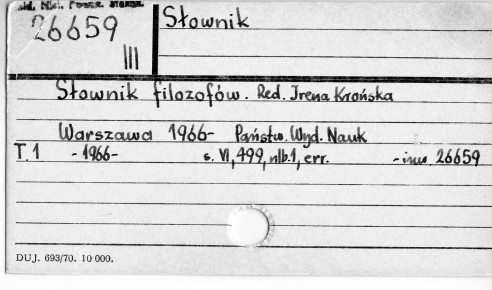 26659
III
Słownik
Słownik filozofów. Red. Irena Krońska
Warszawa 1966- Państw. Wyd. Nauk
T. 1 -1966- s. VI, 499, nlb. 1, err. -inw. 26659
DUJ. 693/70. 10 000.